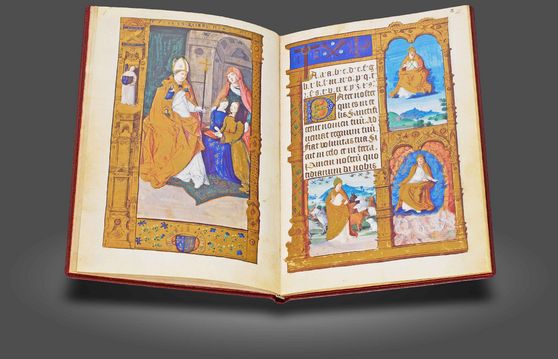 A.a.b.c.d.e.f.g
h.i.k.l.m.n.o.p.q.r
Pater noster
qui es in ce
lis. Sanctifi
cetur nomen tuũ. Ad
ueniat regnum tuũ.
Fiat uoluntas tua Si
cut in celo et in terra.
Panem nostrũ quo
tidianum da nobis